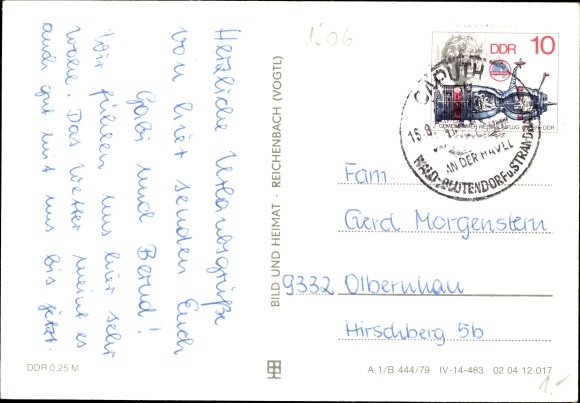 Herzliche Urlaubsgrüße
von hier senden Euch
Gabi und Bernd!
Wir fühlen uns hier sehr
wohl. Das Wetter meint es
auch gut mit uns bis jetzt.
BILD UND HEIMAT · REICHENBACH (VOGTL)
1.06
DDR 10
CAPUTH
15.8.
AN DER HAVEL
WALD-BLÜTENDORF u STRANDBAD
Fam.
Gerd Morgenstern
9332 Olbernhau
Hirschberg 5b
DDR 0,25 M
A 1/B 444/79 IV-14-483 02 04 12 017
1.-